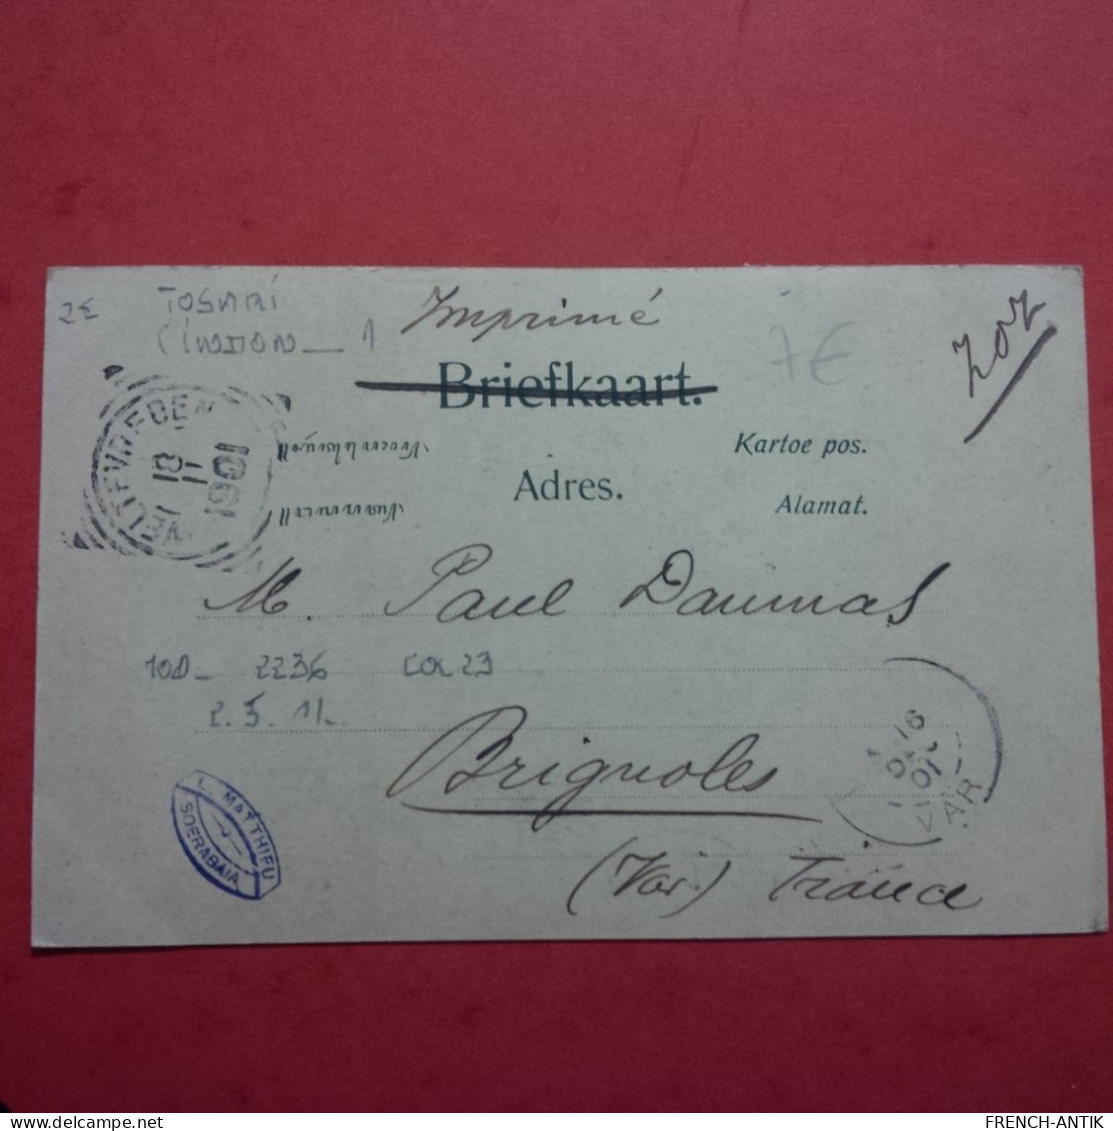 2E TOSARI
(INDON_
Imprimé
7€
Briefkaart.
Kartoe pos.
Adres.
Alamat.
WELTEVREDEN
18
11
1901
M. Paul Daumas
10D_ 2236 COL 23
2.5.11
Brignoles
(Var.) France
16
01
VAR
L. MATTHIEU
SOERABAIA
FRENCH-ANTIK